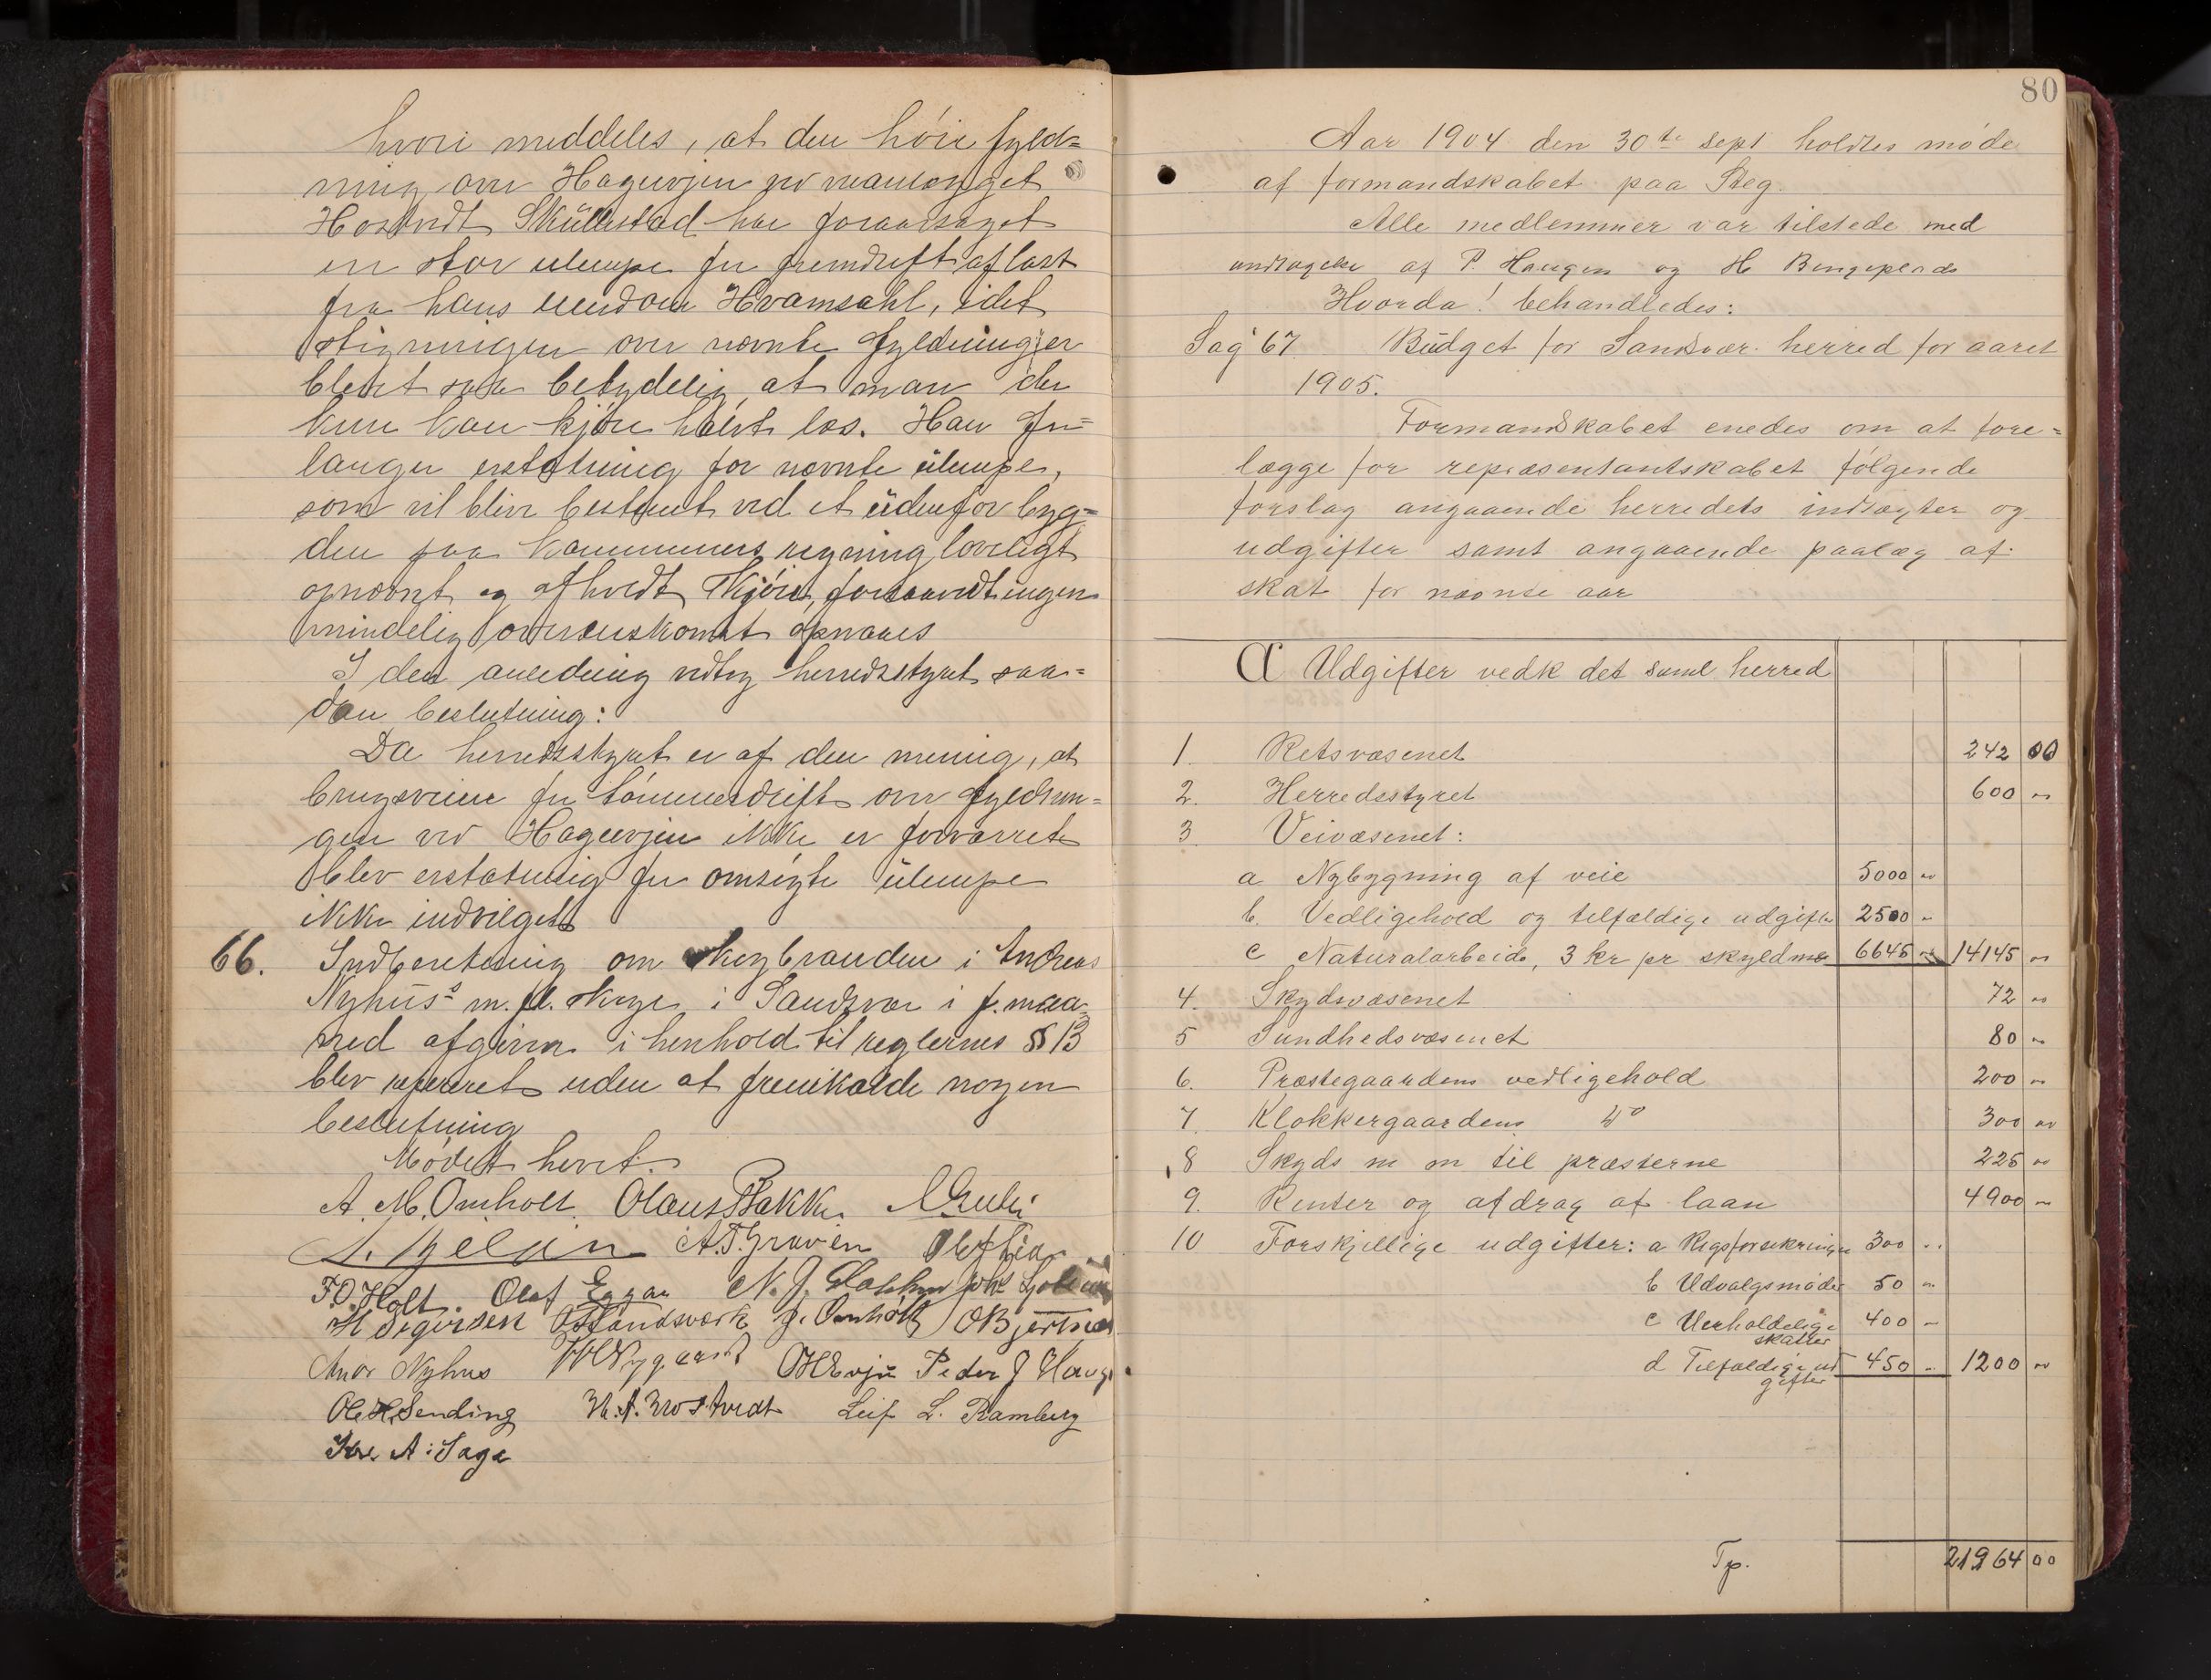 hvori meddeles, at den høie fyld=
ning over Haguvjen ved veianlægget
Hostvedt Sküllestad har foraarsaget
en stor ulempe for fremdrift af last
fra hans eiendom Hvamsahl, idet
stigningen over nævnte fyldninger
blevet saa betydelig, at man der
kun kan kjøre halvt læs. Han for=
langer erstatning for nævnte ülempe,
som vil blive bestemt ved et üdenfor byg=
den paa kommunens regning lovligt
opnævnt og afholdt skjøn, forsaavidt ingen
mindelig overenskomst opnaaes
I den anledning vedtog herredsstyret saa=
dan beslutning:
Da herredsstyret er af den mening, at
brugsveien for tømmerdrift over fyldnin=
gen ved Haguvjen ikke er forværret
blev erstatning for omsigte ülempe
ikke indvilget
66. Indberetning om skogbranden i Andreas
Nyhüs's m. fl. skoge i Sandsvær i f. maa=
ned afgiven i henhold til reglernes § 13
blev refereret uden at fremkalde nogen
beslutning
Mødet hevet.
A. M. Omholt. Olaus Bakke.
A.T. Graven
F.O. Holt. Olaf Eggar N. J.
H Segersen O Landsverk J. Omholt O Bjertnæs
Anor Nyhus W Nygaard O H Evju Peder J Haug
Ole H Sending H. A. Hostvedt Leif L. Ramberg
Iver A: Sage
80
Aar 1904 den 30te sept holdtes møde
af formandskabet paa Steg.
Alle medlemmer var tilstede med
undtagelse af P. Haugen og H
Hvorda! behandledes:
Sag 67. Büdget for Sandsvær herred for aaret
1905.
Formandskabet enedes om at fore=
lægge for repræsentantskabet følgende
forslag angaaende herredets indtægter og
udgifter samt angaaende paalæg af
skat for nævnte aar
A Udgifter vedk det saml herred
1. Retsvæsenet 242 00
2. Herredsstyret 600 "
3. Veivæsenet:
a Nybygning af veie 5000 "
b. Vedligehold og tilfældige udgifter 2500 "
c Naturalarbeide, 3 kr pr skyldmark 6645 " 14145 "
4. Skydsvæsenet 72 "
5 Sundhedsvæsenet 80 "
6. Præstegaardens vedligehold 200 "
7. Klokkergaardens do 300 "
8 Skyds m m til præsterne 225 "
9. Renter og afdrag af laan 4900 "
10 Forskjellige udgifter: a Rigsforsikringen 300 "
b Udvalgsmøder 50 "
c Uerholdelige skatter 400 "
d Tilfældige udgifter 450 " 1200 "
Tp. 21964 00